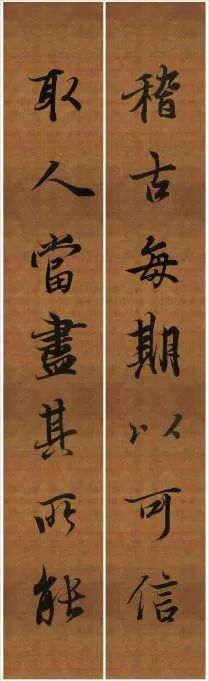 稽古每期以可信
取人當盡其所能